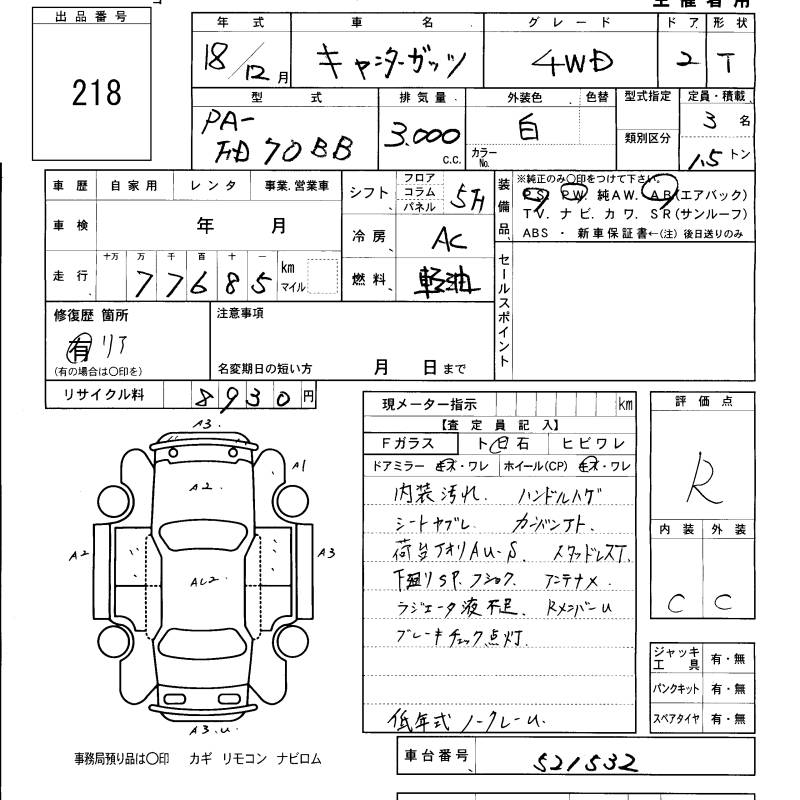 出品番号
218
年式 車名 グレード ドア 形状
18/12月 キャンターガッツ 4WD 2 T
型式 排気量 外装色 色替 型式指定 定員・積載
PA-
FD70BB
3.000 c.c.
白
カラーNo.
類別区分
3 名
1.5 トン
車歴 自家用 レンタ 事業.営業車
車検 年 月
走行 十万 万 千 百 十 一
77685 km マイル
シフト フロア コラム パネル 5F
冷房 AC
燃料 軽油
装備品
※純正のみ〇印をつけて下さい。
PS. PW. 純AW. AB(エアバック)
TV. ナビ. カワ. SR(サンルーフ)
ABS ・ 新車保証書←(注) 後日送りのみ
セールスポイント
修復歴 箇所
有 リア
(有の場合は〇印を)
注意事項
名変期日の短い方 月 日まで
リサイクル料 8930円
現メーター指示 km
【査定員記入】
Fガラス ト 石 ヒビワレ
ドアミラー キズ・ワレ ホイール(CP) キズ・ワレ
内装汚れ. ハンドルハゲ
シートヤブレ. カンバンアト.
荷台アオリAU-S. スタッドレスT.
下廻りSP.フショク. アンテナメ.
ラジエータ液不足. RメンバーU
ブレーキチェック点灯.
低年式ノークレーム.
評価点
R
内装 外装
C C
A3.
A2.
A1
A2
A3
AU2.
A3.U.
ジャッキ 工具 有・無
パンクキット 有・無
スペアタイヤ 有・無
事務局預り品は〇印 カギ リモコン ナビロム
車台番号 521532